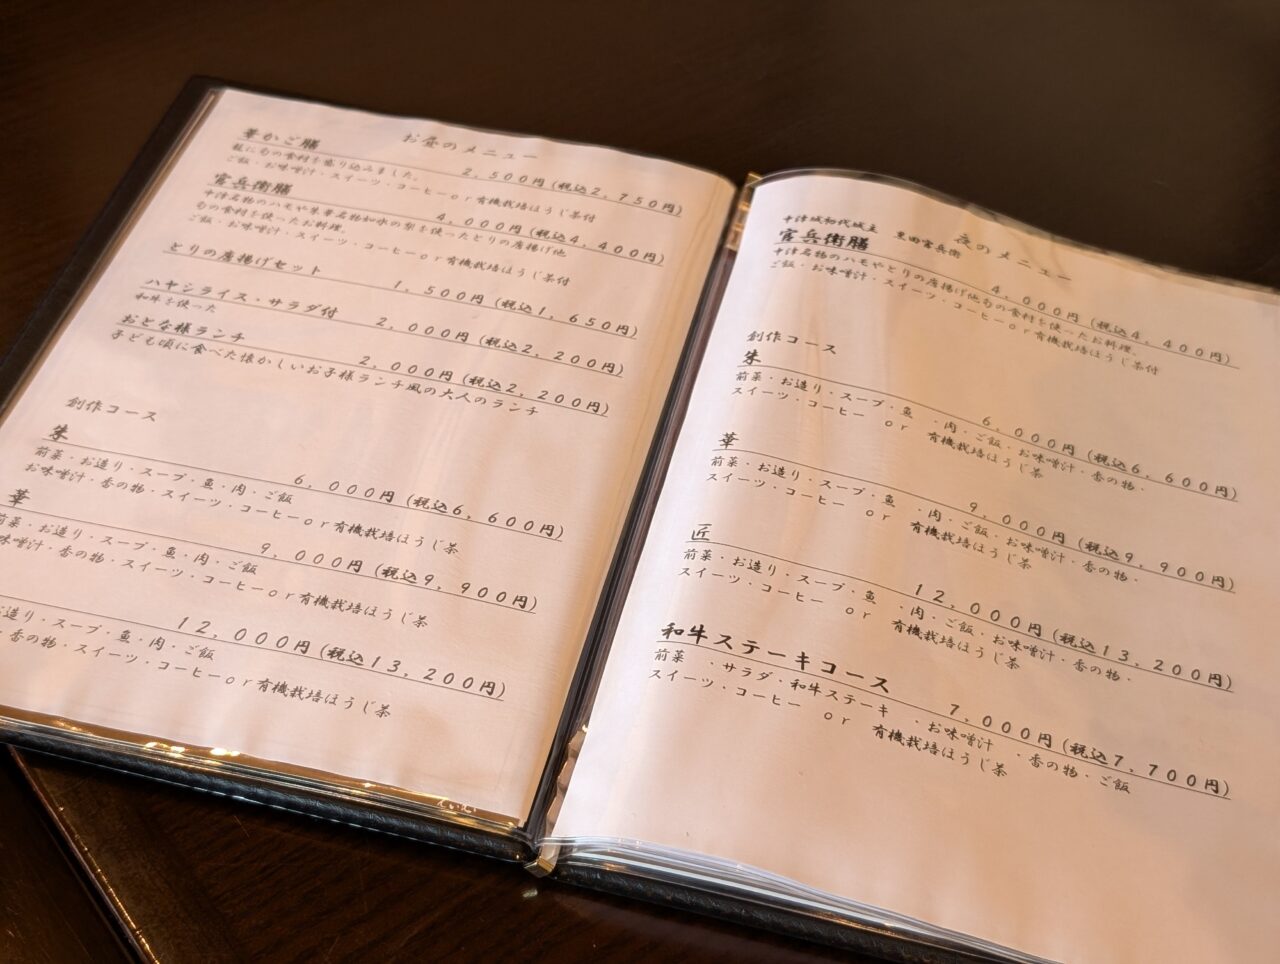 お昼のメニュー
華かご膳 2,500円(税込2,750円)
籠に旬の食材を盛り込みました。
ご飯・お味噌汁・スイーツ・コーヒーor有機栽培ほうじ茶付
官兵衛膳 4,000円(税込4,400円)
中津名物のハモや朱華名物如水の梨を使ったとりの唐揚げ他
旬の食材を使ったお料理。
ご飯・お味噌汁・スイーツ・コーヒーor有機栽培ほうじ茶付
とりの唐揚げセット 1,500円(税込1,650円)
ハヤシライス・サラダ付 2,000円(税込2,200円)
和牛を使った
おとな様ランチ 2,000円(税込2,200円)
子ども頃に食べた懐かしいお子様ランチ風の大人のランチ
創作コース
朱 6,000円(税込6,600円)
前菜・お造り・スープ・魚・肉・ご飯
お味噌汁・香の物・スイーツ・コーヒーor有機栽培ほうじ茶
華 9,000円(税込9,900円)
前菜・お造り・スープ・魚・肉・ご飯
味噌汁・香の物・スイーツ・コーヒーor有機栽培ほうじ茶
12,000円(税込13,200円)
お造り・スープ・魚・肉・ご飯
・香の物・スイーツ・コーヒーor有機栽培ほうじ茶
夜のメニュー
中津城初代城主 黒田官兵衛
官兵衛膳 4,000円(税込4,400円)
中津名物のハモやとりの唐揚げ他旬の食材を使ったお料理。
ご飯・お味噌汁・スイーツ・コーヒーor有機栽培ほうじ茶付
創作コース
朱 6,000円(税込6,600円)
前菜・お造り・スープ・魚 ・肉・ご飯・お味噌汁・香の物・
スイーツ・コーヒー or 有機栽培ほうじ茶
華 9,000円(税込9,900円)
前菜・お造り・スープ・魚 ・肉・ご飯・お味噌汁・香の物・
スイーツ・コーヒー or 有機栽培ほうじ茶
匠 12,000円(税込13,200円)
前菜・お造り・スープ・魚 ・肉・ご飯・お味噌汁・香の物・
スイーツ・コーヒー or 有機栽培ほうじ茶
和牛ステーキコース 7,000円(税込7,700円)
前菜 ・サラダ・和牛ステーキ ・お味噌汁 ・香の物・ご飯
スイーツ・コーヒー or 有機栽培ほうじ茶